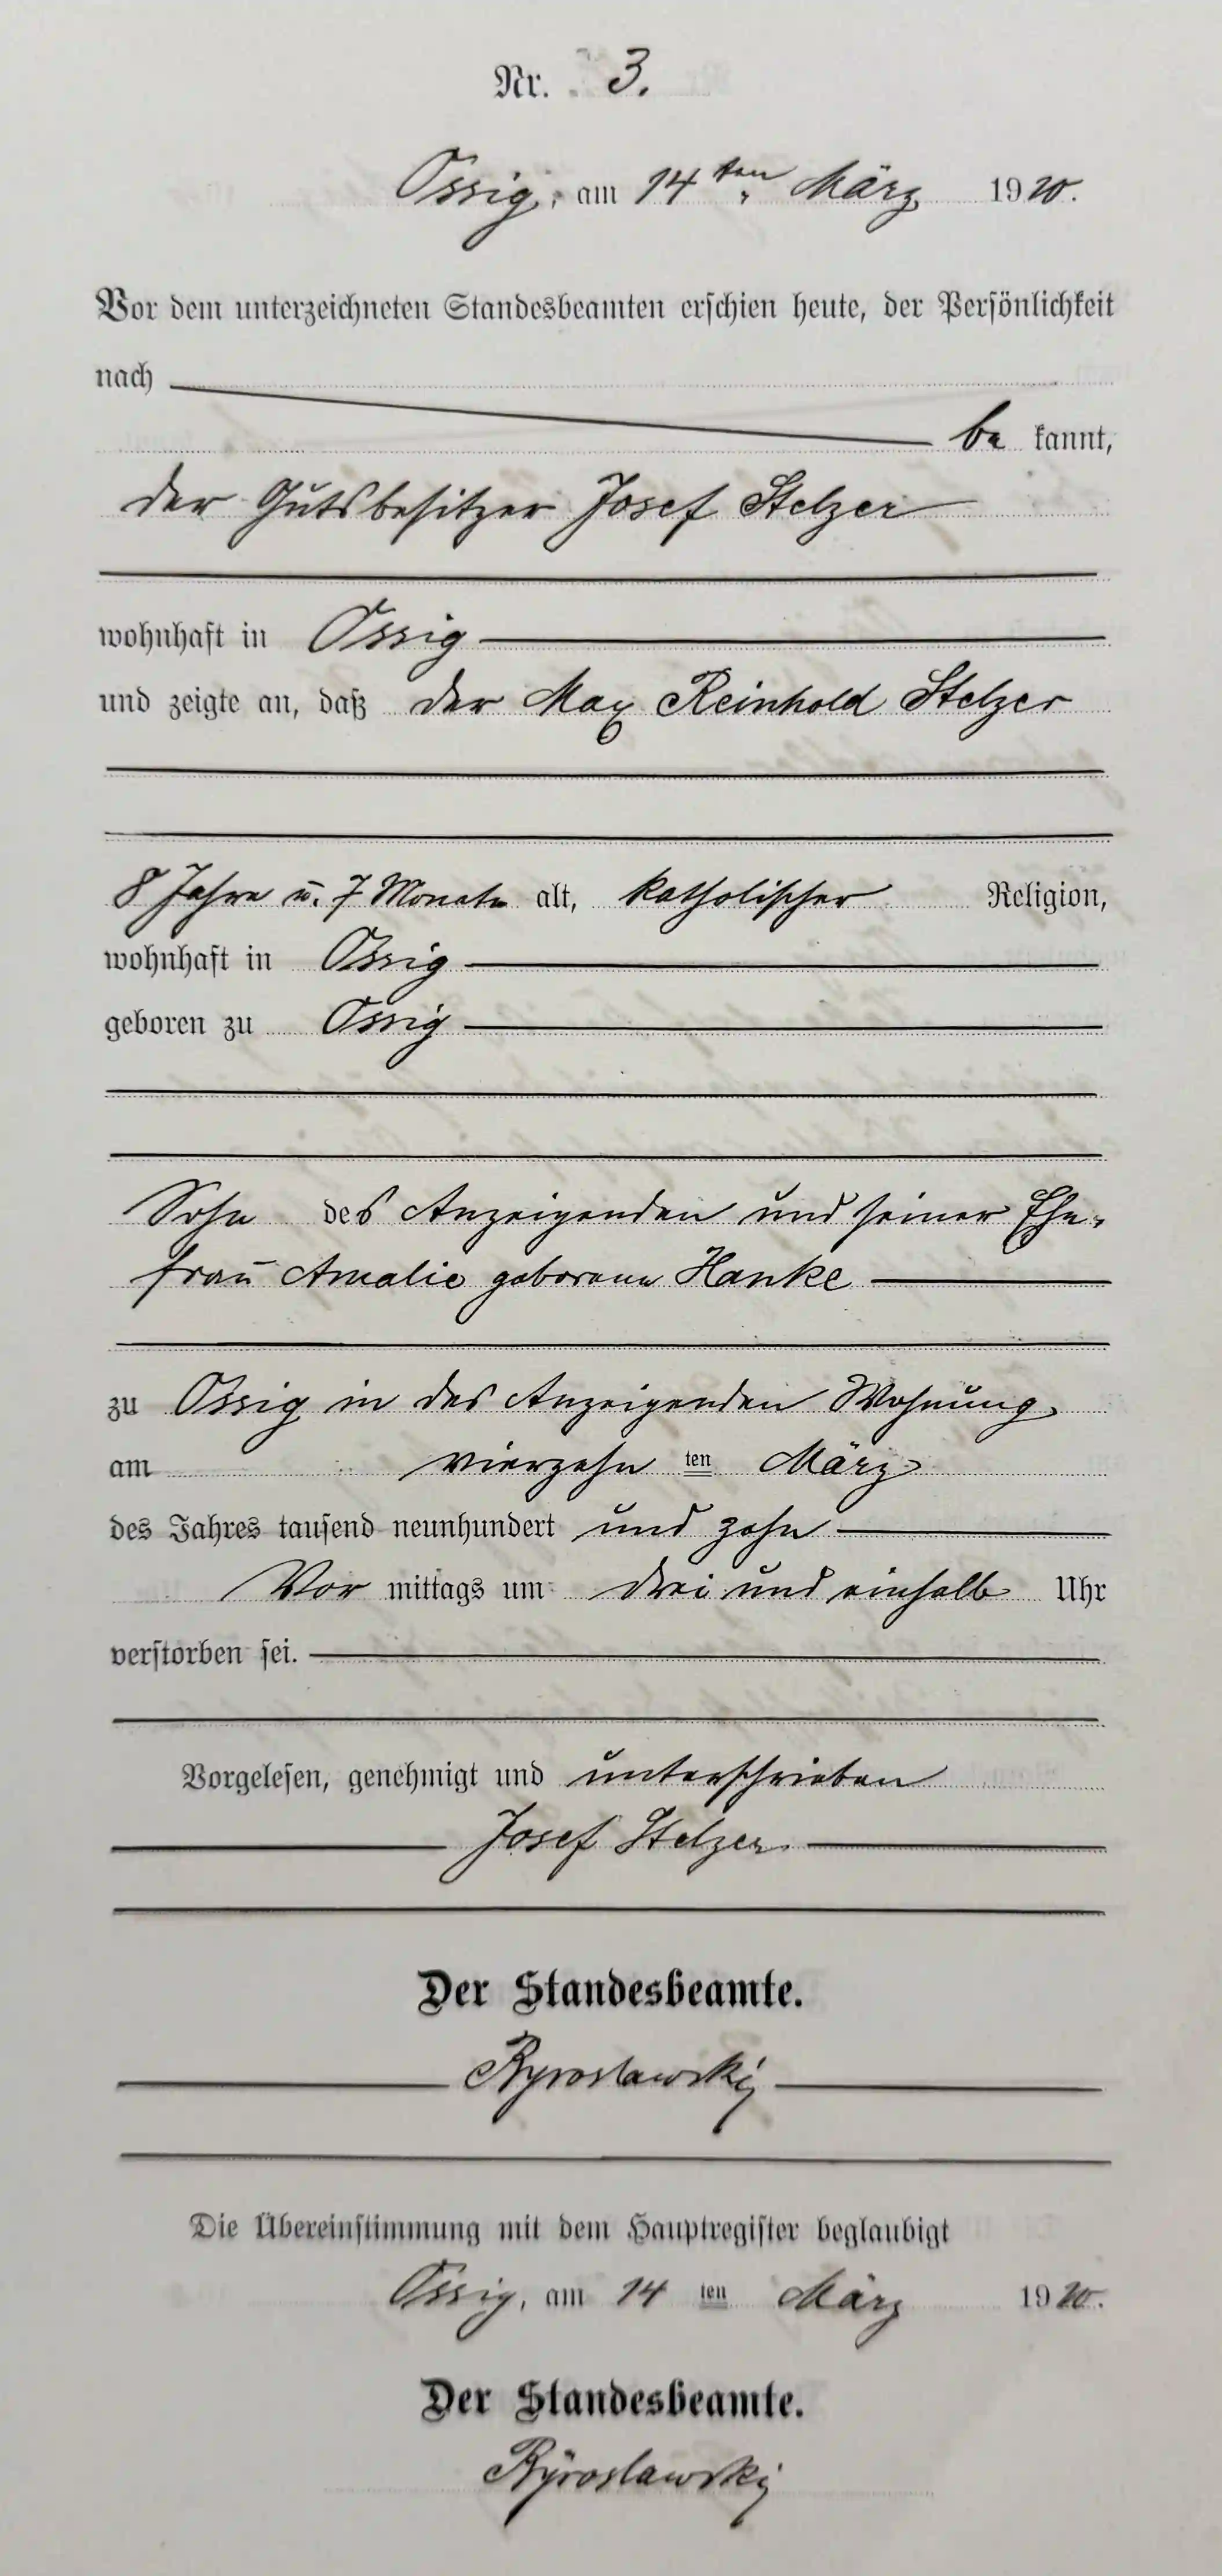 Nr. 3.
Ossig, am 14ten März 1910.
Vor dem unterzeichneten Standesbeamten erschien heute, der Persönlichkeit
nach
be kannt,
der Gutsbesitzer Josef Stelzer
wohnhaft in Ossig
und zeigte an, daß der Max Reinhold Stelzer
8 Jahre u. 7 Monate alt, katholischer Religion,
wohnhaft in Ossig
geboren zu Ossig
Sohn des Anzeigenden und seiner Ehe-
frau Amalie geborene Hanke
zu Ossig in des Anzeigenden Wohnung
am vierzehn ten März
des Jahres tausend neunhundert und zehn
Vor mittags um drei und einhalb Uhr
verstorben sei.
Vorgelesen, genehmigt und unterschrieben
Josef Stelzer.
Der Standesbeamte.
Die Übereinstimmung mit dem Hauptregister beglaubigt
Ossig, am 14 ten März 1910.
Der Standesbeamte.